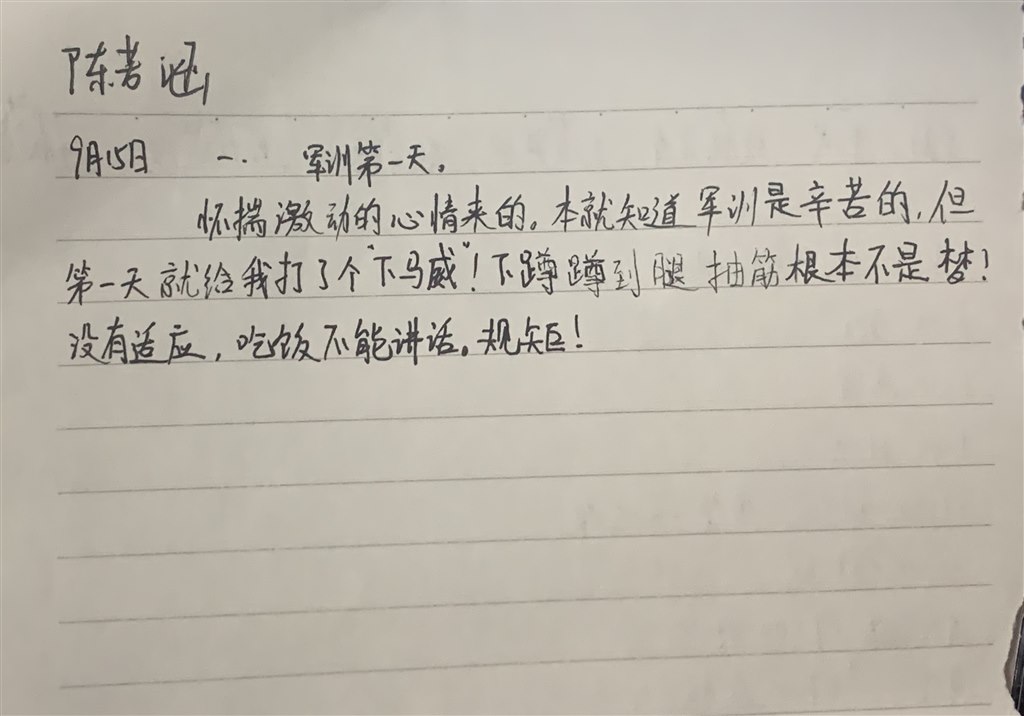 陈若涵
9月15日 一. 军训第一天。
怀揣激动的心情来的。本就知道军训是辛苦的,但
第一天就给我打了个"下马威"!下蹲蹲到腿抽筋根本不是梦!
没有适应,吃饭不能讲话。规矩!